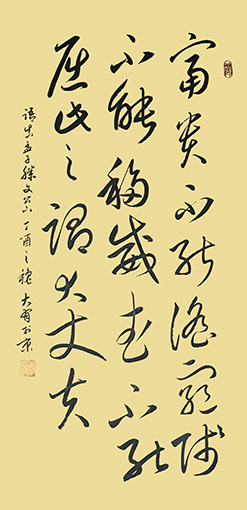 富貴不能淫貧賤
不能移威武不能
屈此之謂大丈夫
語出孟子滕文公下 丁酉之秋 大於京